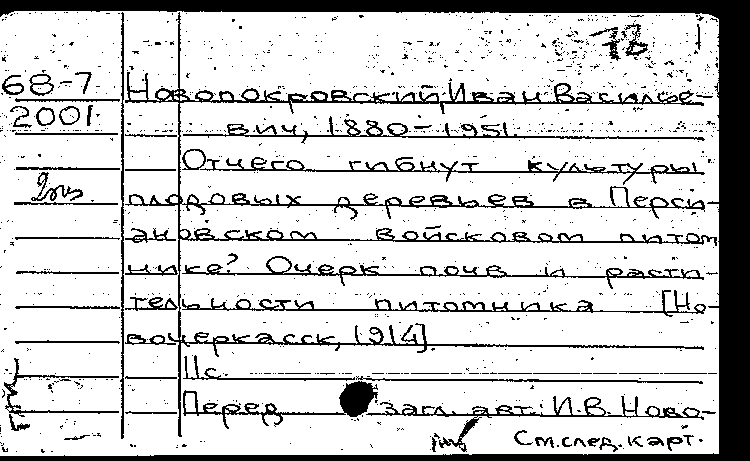 78
68-7
2001
Новопокровский, Иван Василье-
вич, 1880-1951.
Отчего гибнут культуры
плодовых деревьев в Перси-
ановском войсковом питом
нике? Очерк почв и расти-
тельности питомника [Но-
вочеркасск, 1914].
11с.
Перед загл. авт.: И.В. Ново-
См.след.карт.